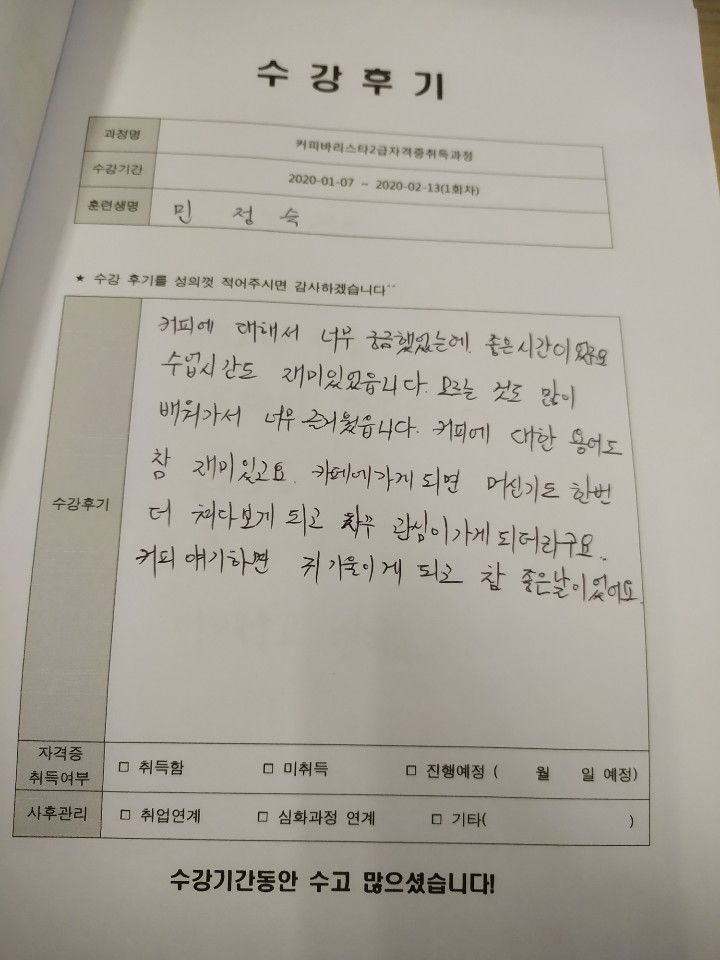 수강후기
과정명 커피바리스타2급자격증취득과정
수강기간 2020-01-07 ~ 2020-02-13(1회차)
훈련생명 민 정숙
★ 수강 후기를 성의껏 적어주시면 감사하겠습니다^^
커피에 대해서 너무 궁금했었는데. 좋은시간이었구요
수업시간도 재미있었읍니다. 모르는 것도 많이
배워가서 너무 즐거웠읍니다. 커피에 대한 용어도
참 재미있고요. 카페에가게 되면 머신기도 한번
수강후기
더 쳐다보게 되고 자꾸 관심이가게 되더라구요..
커피 얘기하면 귀기울이게 되고 참 좋은날이었어요.
자격증
취득여부 □ 취득함 □ 미취득 □ 진행예정 ( 월 일 예정)
사후관리 □ 취업연계 □ 심화과정 연계 □ 기타( )
수강기간동안 수고 많으셨습니다!